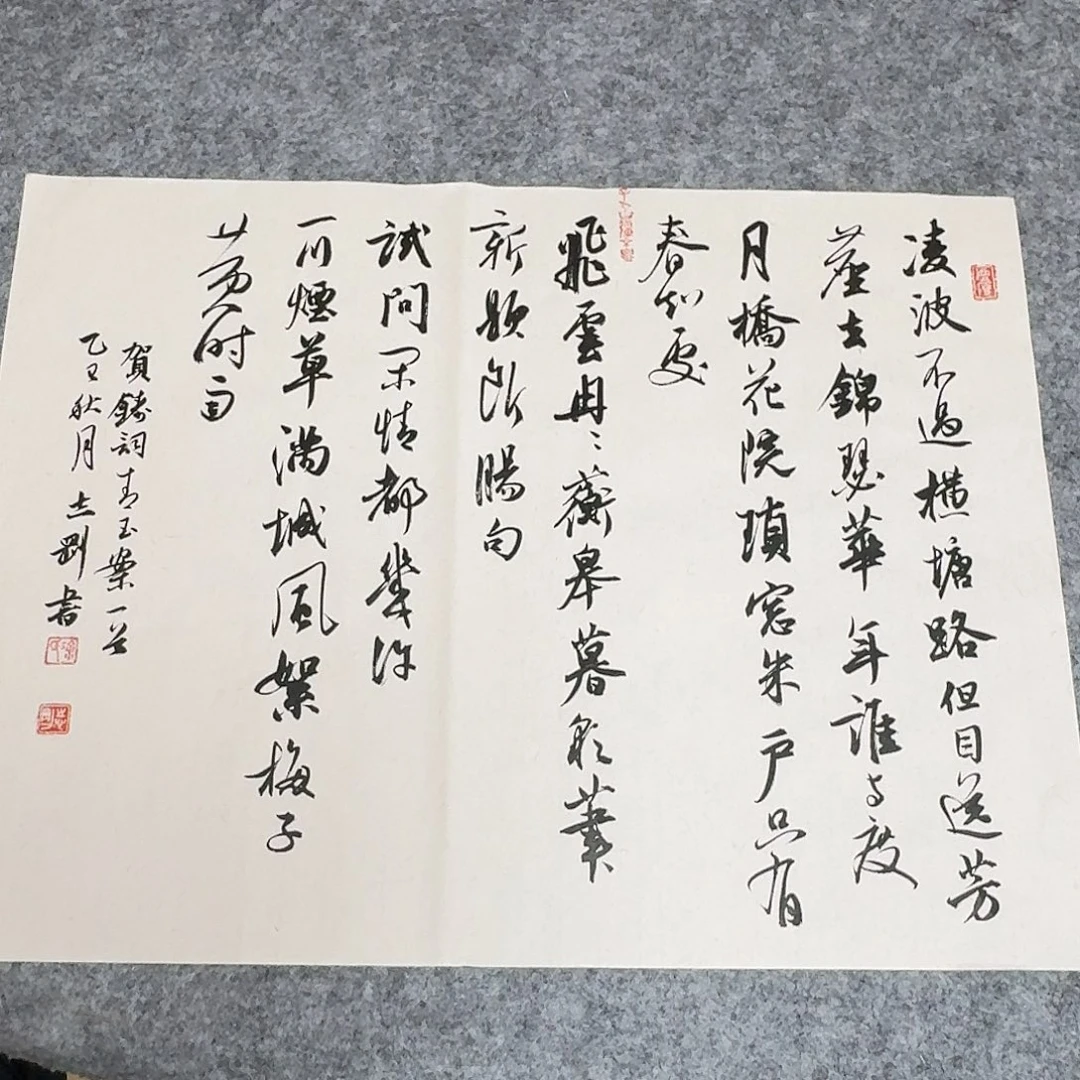 凌波不過橫塘路但目送芳
塵去錦瑟華年誰与度
月橋花院瑣窓朱戶只有
春知處
飛雲冉〻蘅皋暮彩筆
新題斷腸句
試問閑情都幾許
一川煙草滿城風絮梅子
黃时雨
賀鑄詞青玉案一首
乙秋月志剛書